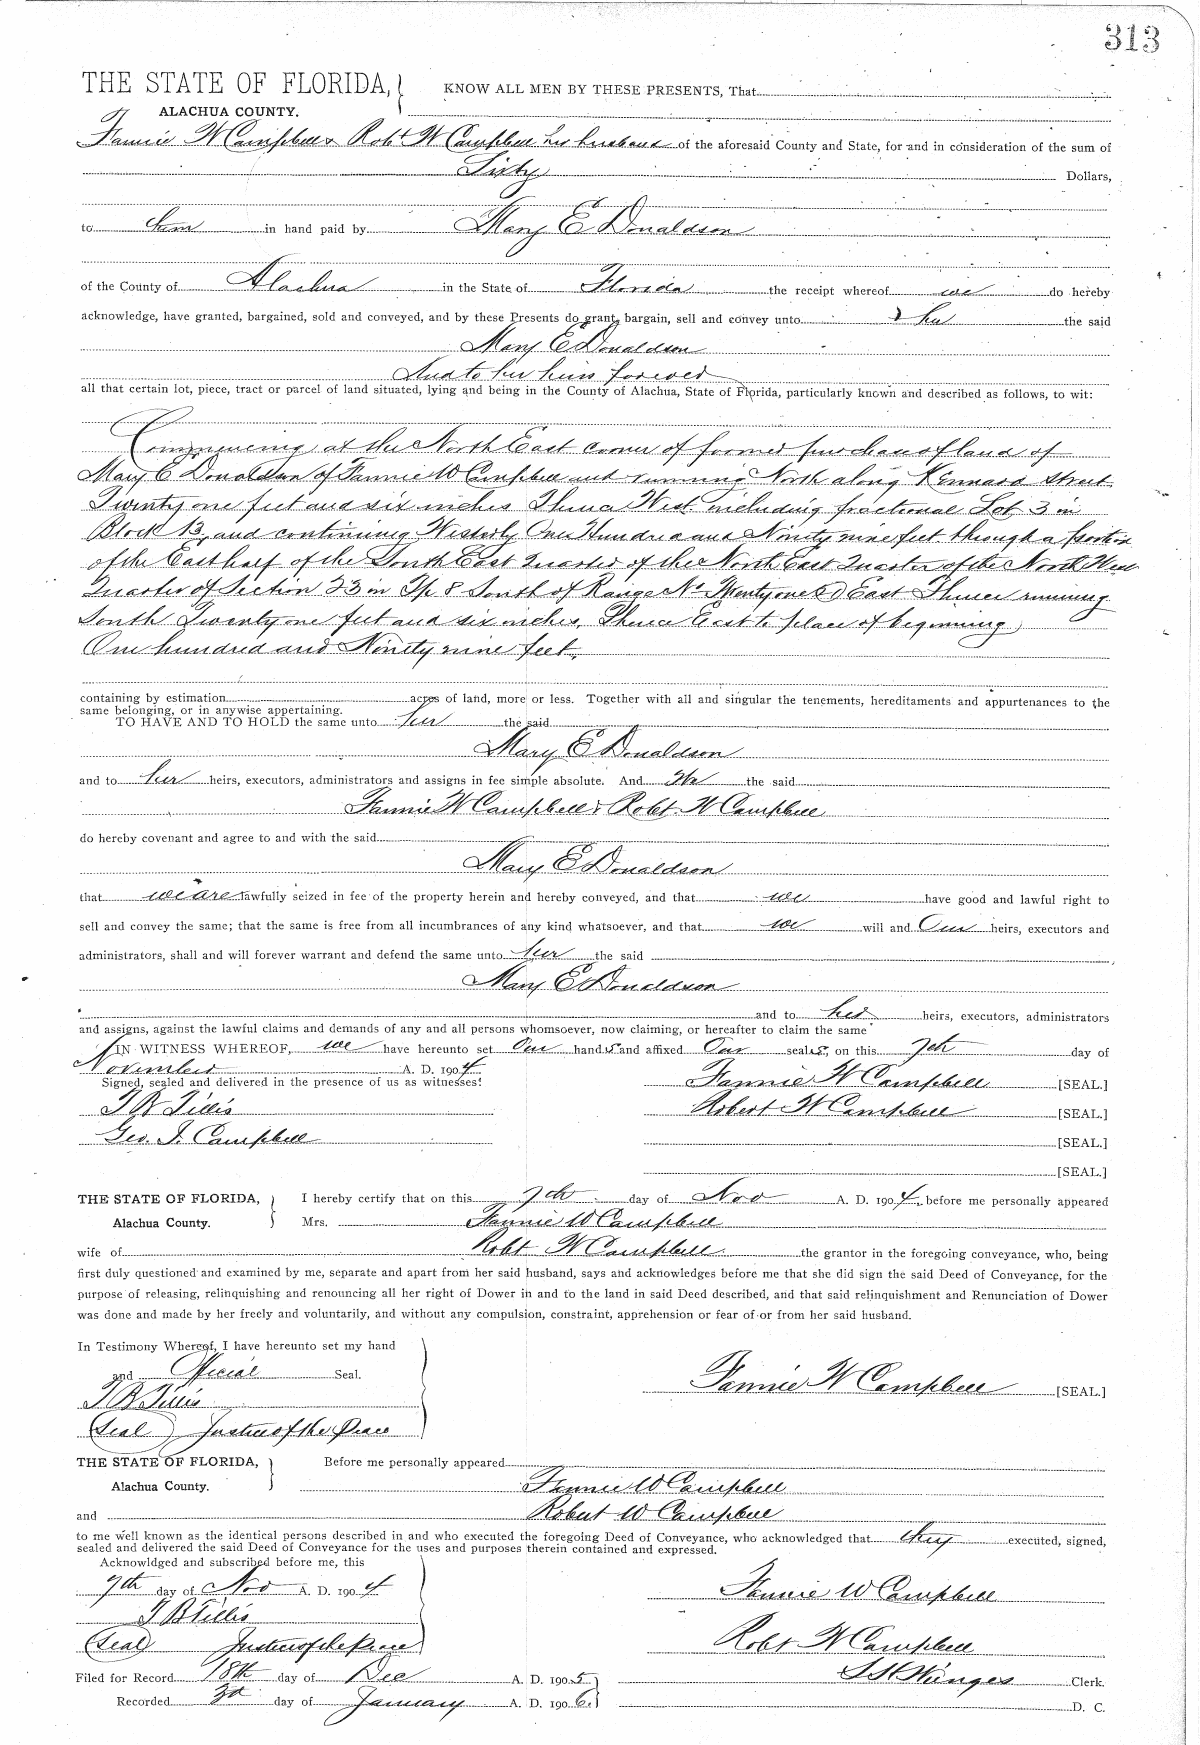 313
THE STATE OF FLORIDA, KNOW ALL MEN BY THESE PRESENTS, That
ALACHUA COUNTY.
Fannie W Campbell & Robt W Campbell her husband of the aforesaid County and State, for and in consideration of the sum of
Sixty Dollars,
to them in hand paid by Mary E Donaldson
of the County of Alachua in the State of Florida the receipt whereof we do hereby
acknowledge, have granted, bargained, sold and conveyed, and by these Presents do grant, bargain, sell and convey unto her the said
Mary E Donaldson
And to her heirs forever
all that certain lot, piece, tract or parcel of land situated, lying and being in the County of Alachua, State of Florida, particularly known and described as follows, to wit:
Commencing at the North East corner of former purchase of land of
Mary E Donaldson of Fannie W Campbell and running North along Kennard Street
Twenty one feet and six inches Thence West including fractional Lot 3 in
Block 13, and continuing Westerly One Hundred and Ninety nine feet through a portion
of the East half of the South East Quarter of the North East Quarter of the North West
Quarter of Section 23 in Tp 8 South of Range No Twenty one East Thence running
South Twenty one feet and six inches, Thence East to place of beginning,
One hundred and Ninety nine feet.
containing by estimation acres of land, more or less. Together with all and singular the tenements, hereditaments and appurtenances to the
same belonging, or in anywise appertaining.
TO HAVE AND TO HOLD the same unto her the said
Mary E Donaldson
and to her heirs, executors, administrators and assigns in fee simple absolute. And We the said
Fannie W Campbell & Robt. W Campbell
do hereby covenant and agree to and with the said
Mary E Donaldson
that we are lawfully seized in fee of the property herein and hereby conveyed, and that we have good and lawful right to
sell and convey the same; that the same is free from all incumbrances of any kind whatsoever, and that we will and Our heirs, executors and
administrators, shall and will forever warrant and defend the same unto her the said
Mary E Donaldson
and to her heirs, executors, administrators
and assigns, against the lawful claims and demands of any and all persons whomsoever, now claiming, or hereafter to claim the same
IN WITNESS WHEREOF, we have hereunto set Our hands and affixed Our seals, on this 7th day of
November A. D. 1904
Signed, sealed and delivered in the presence of us as witnesses: Fannie W Campbell [SEAL.]
T B Tillis Robert W Campbell [SEAL.]
Geo. J. Campbell [SEAL.]
[SEAL.]
THE STATE OF FLORIDA, I hereby certify that on this 7th day of Nov A. D. 1904, before me personally appeared
Alachua County. Mrs. Fannie W Campbell
wife of Robt W Campbell the grantor in the foregoing conveyance, who, being
first duly questioned and examined by me, separate and apart from her said husband, says and acknowledges before me that she did sign the said Deed of Conveyance, for the
purpose of releasing, relinquishing and renouncing all her right of Dower in and to the land in said Deed described, and that said relinquishment and Renunciation of Dower
was done and made by her freely and voluntarily, and without any compulsion, constraint, apprehension or fear of or from her said husband.
In Testimony Whereof, I have hereunto set my hand
and Official Seal. Fannie W Campbell [SEAL.]
T B Tillis
(Seal) Justice of the Peace
THE STATE OF FLORIDA, Before me personally appeared
Alachua County. Fannie W Campbell
and Robert W Campbell
to me well known as the identical persons described in and who executed the foregoing Deed of Conveyance, who acknowledged that they executed, signed,
sealed and delivered the said Deed of Conveyance for the uses and purposes therein contained and expressed.
Acknowldged and subscribed before me, this
7th day of Nov A. D. 1904 Fannie W Campbell
T B Tillis
(Seal) Justice of the Peace Robt W Campbell
Filed for Record 18th day of Dec A. D. 1905 S H Wienges Clerk.
Recorded 3d day of January A. D. 1906. D. C.